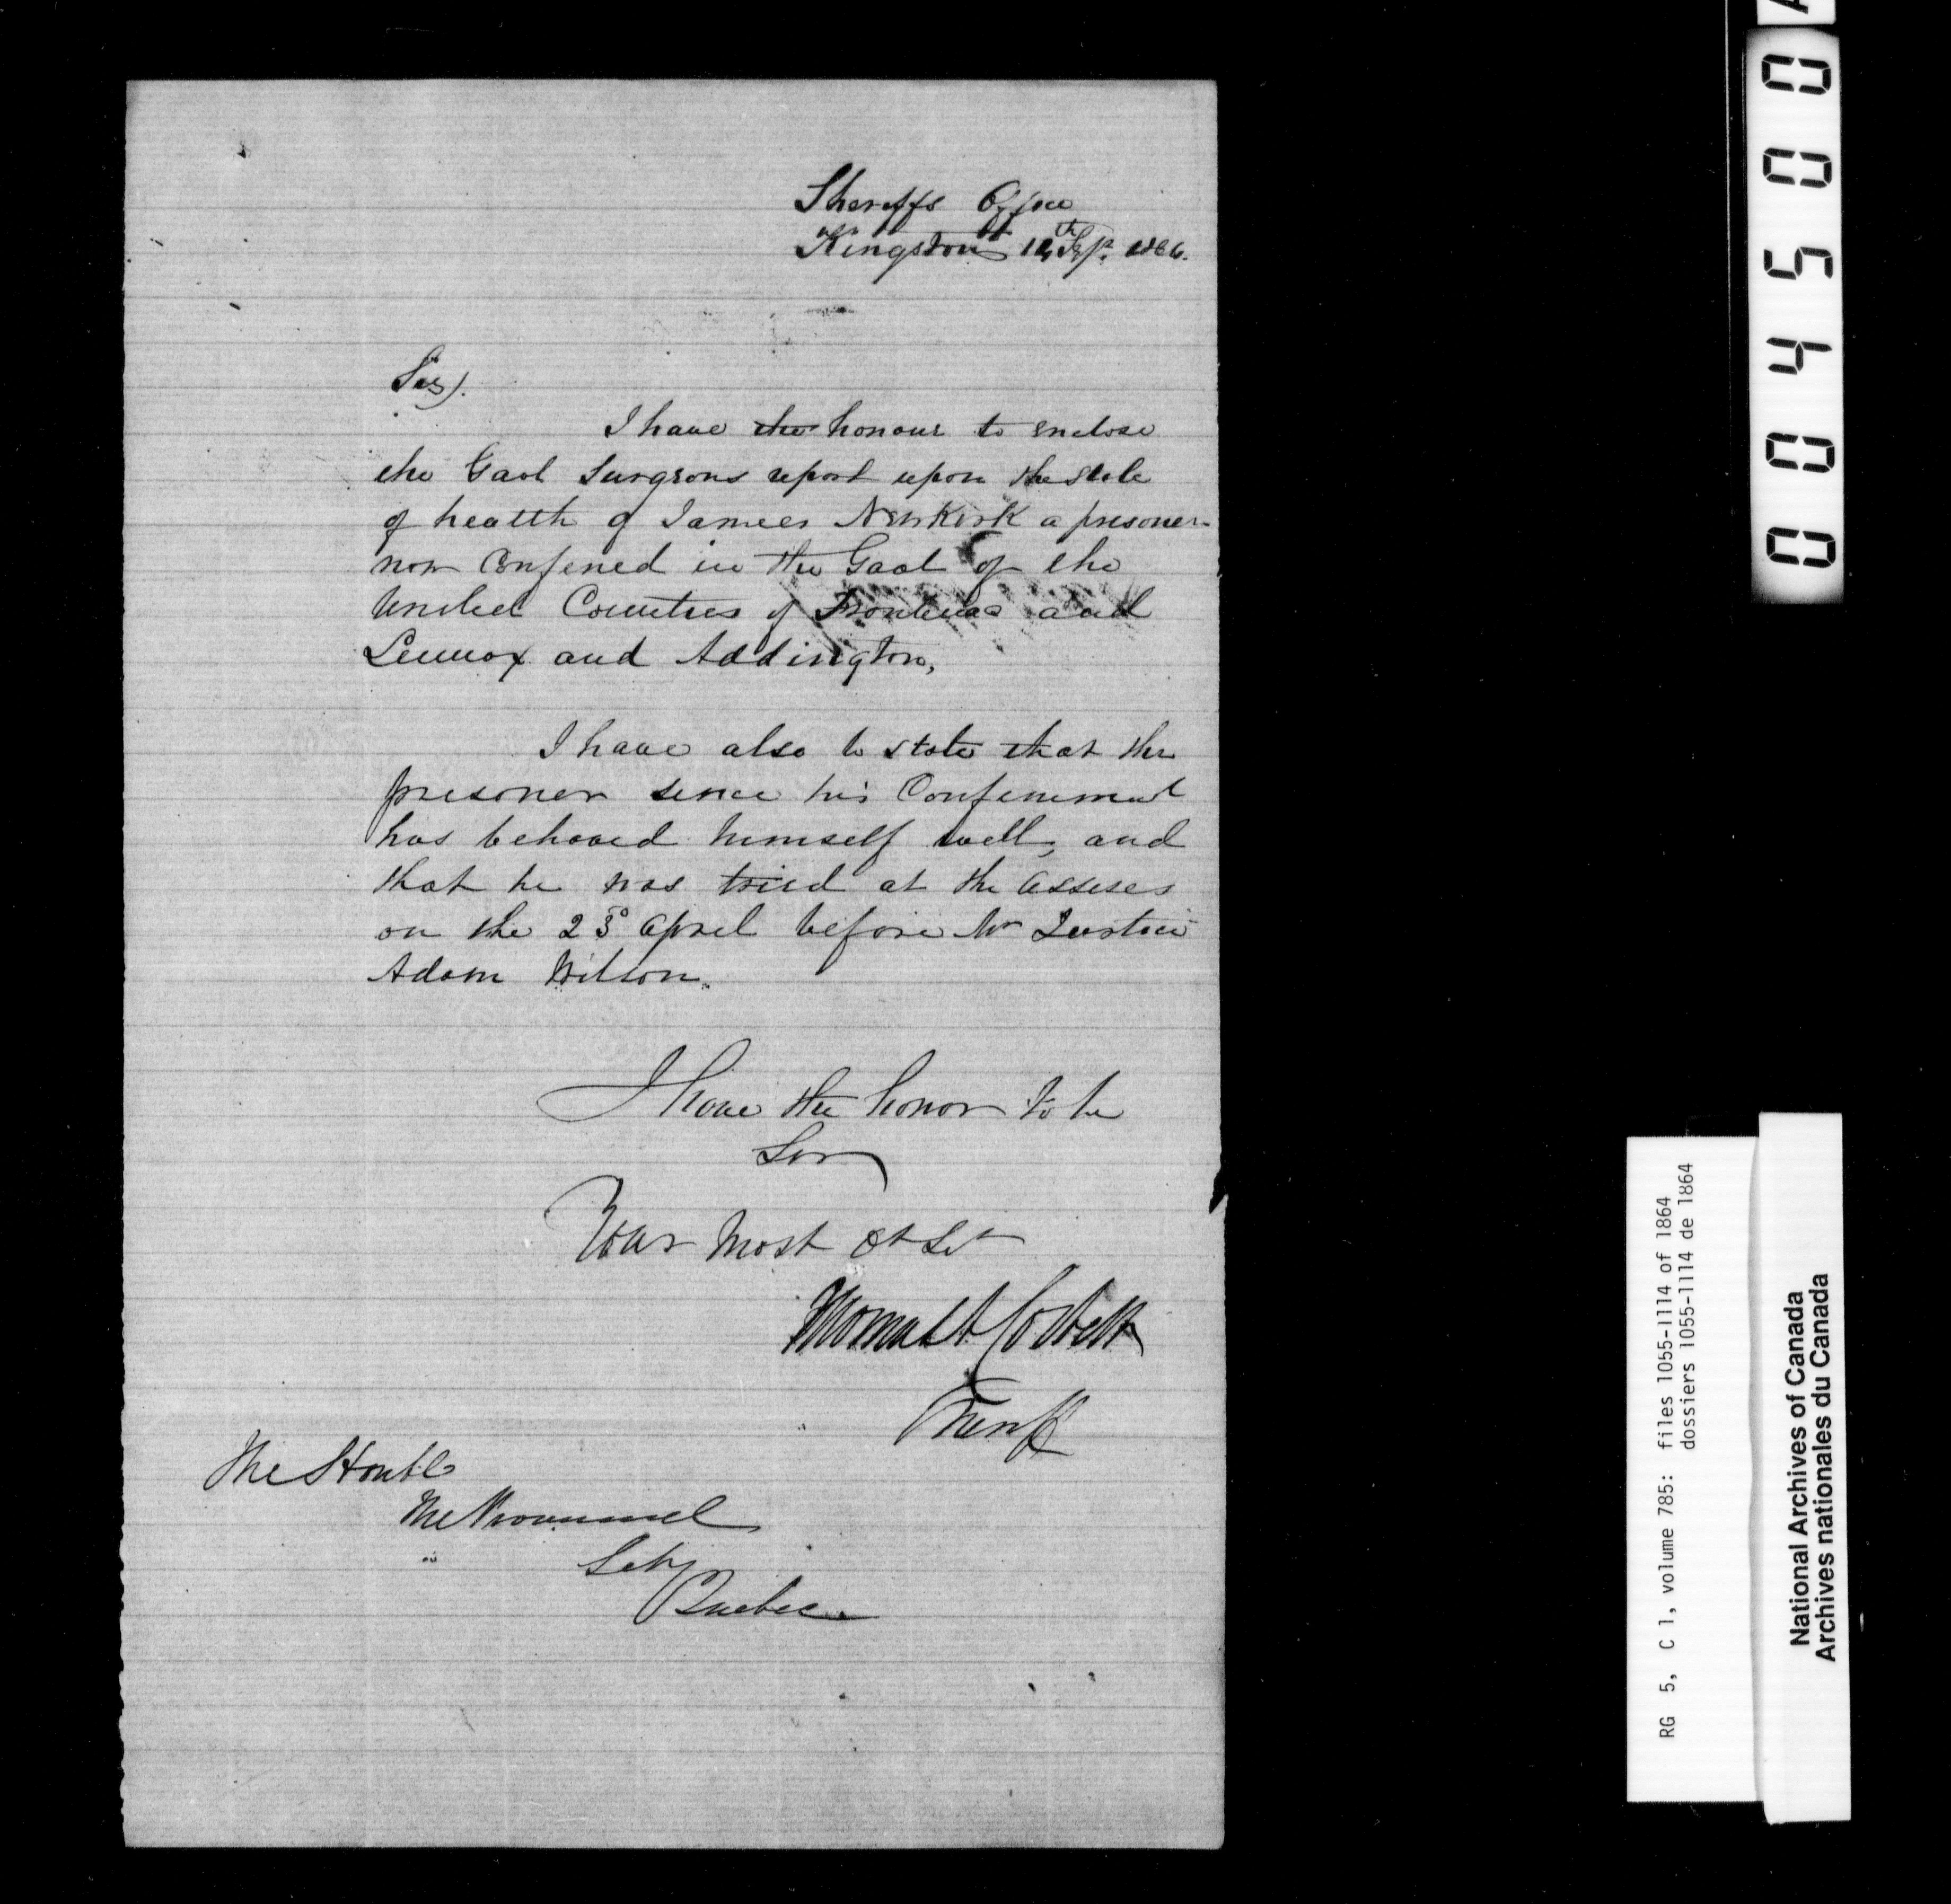 Sheriffs Office
Kingston 14th Sep. 1864.
Sir).
I have the honour to enclose
the Gaol Surgeons report upon the state
of health of James Newkirk a prisoner
now Confined in the Gaol of the
United Counties of Frontenac and
Lennox and Addington,
I have also to state that the
prisoner since his Confinement
has behaved himself well, and
that he was tried at the Assises
on the 23d April before Mr Justice
Adam Wilson.
I have the honor to be
Sir
Your Most Obt Svt
Thomas A Corbett
Sheriff
The Honble
The Provincial
Secy
Quebec
00450
RG 5, C 1, volume 785: files 1055-1114 of 1864
dossiers 1055-1114 de 1864
National Archives of Canada
Archives nationales du Canada